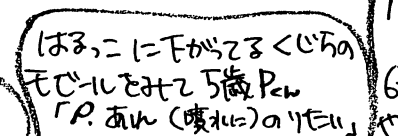 はるっこ に下がってる くじらの
モビールをみて 5歳 Pくん
「P. あれ のりたい」